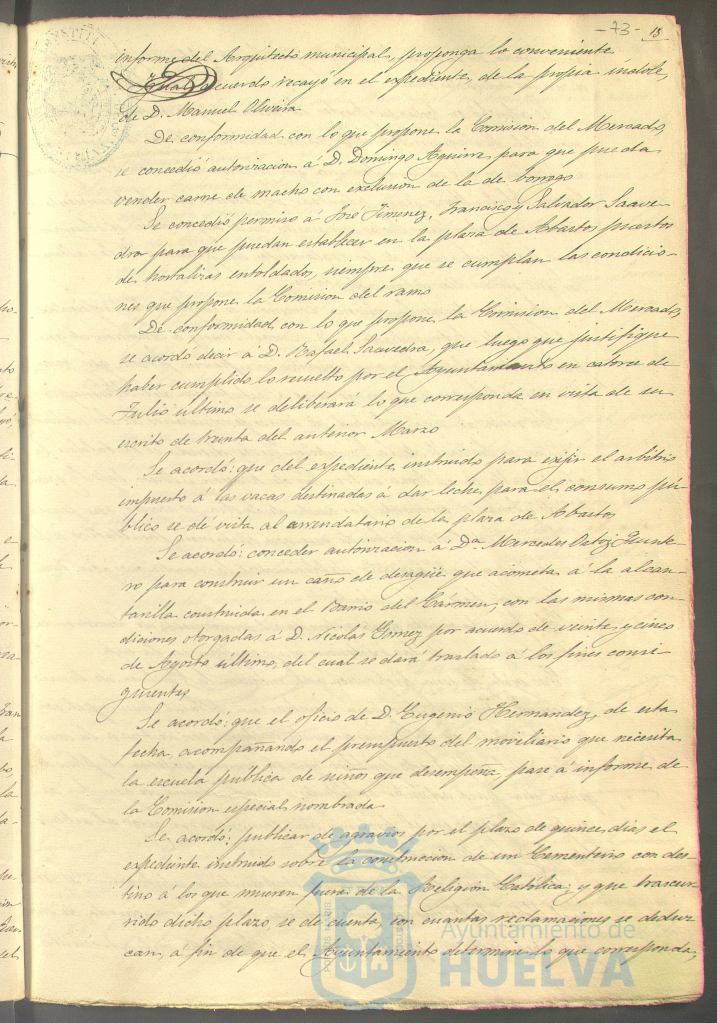 -73- 13
informe del Arquitecto municipal, proponga lo conveniente
Igual acuerdo recayó en el expediente, de la propia indole,
de D. Manuel Oliveira
De conformidad con lo que propone la Comision del Mercado,
se concedió autorizacion á D. Domingo Aguirre, para que pueda
vender carne de macho con exclusion de la de borrego
Se concedió permiso á José Jimenez, Francisco y Salvador Saave-
dra para que puedan establecer en la plaza de Abastos puestos
de hortalizas entoldados, siempre que se cumplan las condicio-
nes que propone la Comision del ramo
De conformidad con lo que propone la Comision del Mercado,
se acordó decir á D. Rafael Saavedra, que luego que justifique
haber cumplido lo resuelto por el Ayuntamiento en catorce de
Julio último se deliberará lo que corresponda en vista de su
escrito de treinta del anterior Marzo
Se acordó: que del expediente instruido para exijir el arbitrio
impuesto á las vacas destinadas á dar leche para el consumo pú-
blico se dé vista al arrendatario de la plaza de Abastos
Se acordó: conceder autorizacion á Dª Mercedes Ortiz Quinte-
ro para construir un caño de desagüe que acometa á la alcan-
tarilla construida en el Barrio del Cármen, con las mismas con-
diciones otorgadas á D. Nicolás Gomez por acuerdo de veinte y cinco
de Agosto último, del cual se dará traslado á los fines consi-
guientes
Se acordó: que el oficio de D. Eugenio Hernandez, de esta
fecha, acompañando el presupuesto del moviliario que necesita
la escuela pública de niños que desempeña pase á informe de
la Comision especial nombrada
Se acordó: publicar de agravios por el plazo de quince dias el
expediente instruido sobre la construccion de un Cementerio con des-
tino á los que mueren fuera de la Religion Católica; y que trascur-
rido dicho plazo, se dé cuenta con cuantas reclamaciones se deduz-
can, á fin de que el Ayuntamiento determine lo que corresponda,
Ayuntamiento de
HUELVA